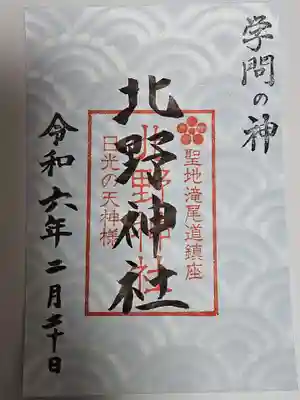 学問の神
聖地滝尾道鎮座
北野神社
北野神社
日光の天神様
令和六年二月二十日